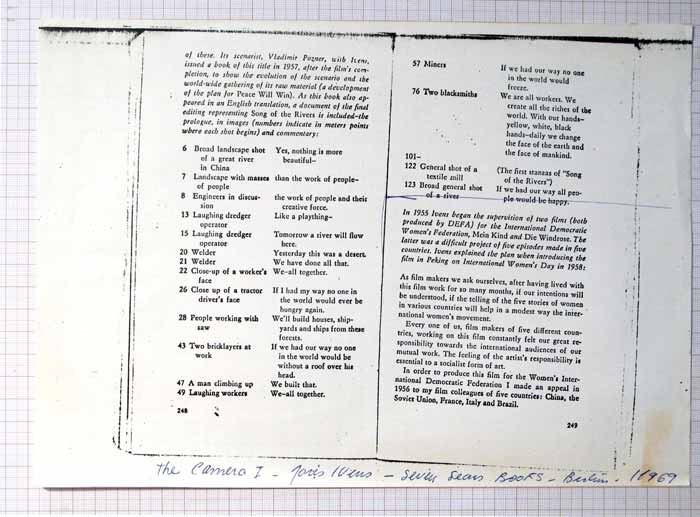 of these. Its scenarist, Vladimir Pozner, with Ivens,
issued a book of this title in 1957, after the film's com-
pletion, to show the evolution of the scenario and the
world-wide gathering of its raw material (a development
of the plan for Peace Will Win). As this book also ap-
peared in an English translation, a document of the final
editing representing Song of the Rivers is included—the
prologue, in images (numbers indicate in meters points
where each shot begins) and commentary:
6 Broad landscape shot Yes, nothing is more
of a great river beautiful—
in China
7 Landscape with masses than the work of people—
of people
8 Engineers in discus- the work of people and their
sion creative force.
13 Laughing dredger Like a plaything—
operator
15 Laughing dredger Tomorrow a river will flow
operator here.
20 Welder Yesterday this was a desert.
21 Welder We have done all that.
22 Close-up of a worker's We—all together.
face
26 Close up of a tractor If I had my way no one in
driver's face the world would ever be
hungry again.
28 People working with We'll build houses, ship-
saw yards and ships from these
forests.
43 Two bricklayers at If we had our way no one
work in the world would be
without a roof over his
head.
47 A man climbing up We built that.
49 Laughing workers We—all together.
248
57 Miners If we had our way no one
in the world would
freeze.
76 Two blacksmiths We are all workers. We
create all the riches of the
world. With our hands—
yellow, white, black
hands—daily we change
the face of the earth and
the face of mankind.
101—
122 General shot of a (The first stanzas of "Song
textile mill of the Rivers")
123 Broad general shot If we had our way all peo-
of a river ple would be happy.
In 1955 Ivens began the supervision of two films (both
produced by DEFA) for the International Democratic
Women's Federation, Mein Kind and Die Windrose. The
latter was a difficult project of five episodes made in five
countries. Ivens explained the plan when introducing the
film in Peking on International Women's Day in 1958:
As film makers we ask ourselves, after having lived with
this film work for so many months, if our intentions will
be understood, if the telling of the five stories of women
in various countries will help in a modest way the inter-
national women's movement.
Every one of us, film makers of five different coun-
tries, working on this film constantly felt our great re-
sponsibility towards the international audiences of our
mutual work. The feeling of the artist's responsibility is
essential to a socialist form of art.
In order to produce this film for the Women's Inter-
national Democratic Federation I made an appeal in
1956 to my film colleagues of five countries: China, the
Soviet Union, France, Italy and Brazil.
249
The Camera I - Joris Ivens - Seven Seas Books - Berlin - 1969